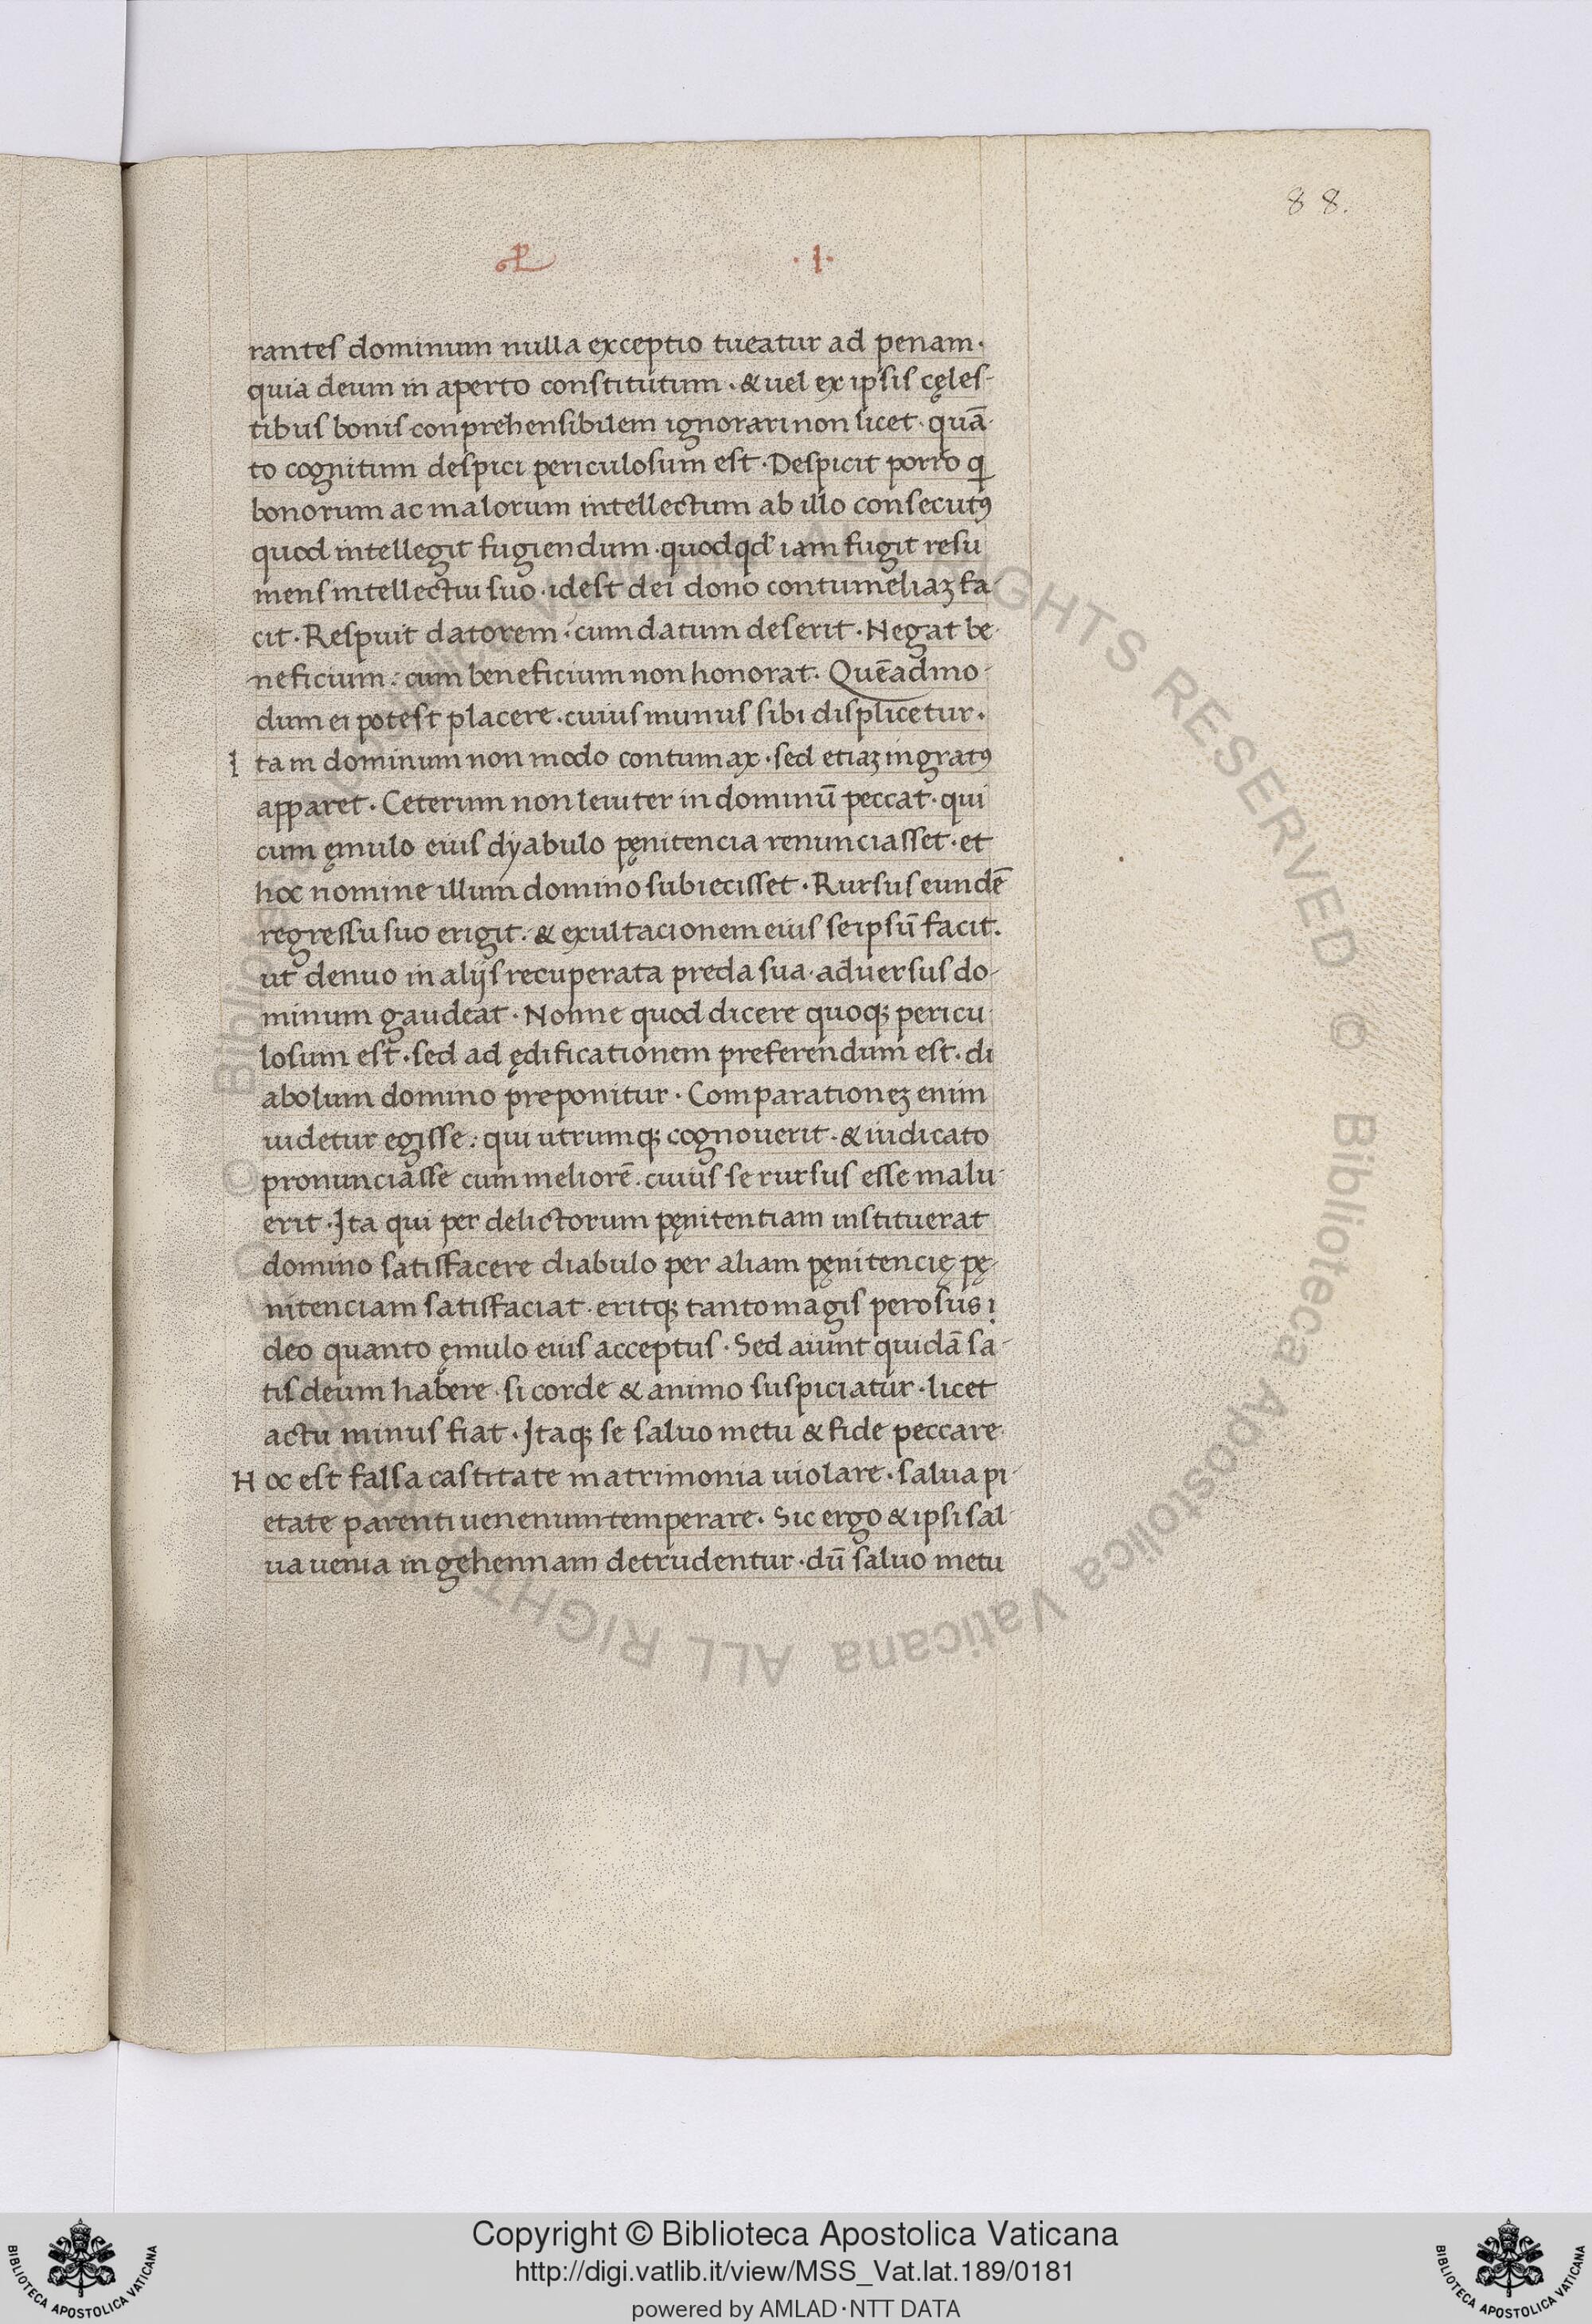 88.
PL .I.
rantes dominum nulla exceptio tueatur ad penam.
quia deum in aperto constitutum. & uel ex ipsis cęles-
tibus bonis conprehensibilem ignorari non licet. quā-
to cognitum despici periculosum est. Despicit porro q
bonorum ac malorum intellectum ab illo consecutꝰ
quod intellegit fugiendum. quodqd iam fugit resu
mens intellectui suo. idest dei dono contumeliaꝫ fa-
cit. Respuit datorem: cum datum deserit. Negat be-
neficium: cum beneficium non honorat. Quēadmo-
dum ei potest placere. cuius munus sibi displicetur.
I tam dominum non modo contumax. sed etiaꝫ ingratꝰ
apparet. Ceterum non leuiter in dominū peccat. qui
cum ęmulo eius dyabulo pęnitencia renunciasset. et
hoc nomine illum domino subiecisset. Rursus eundē
regressu suo erigit. & exultacionem eius seipsū facit.
ut denuo in alijs recuperata preda sua. aduersus do-
minum gaudeat. Nonne quod dicere quoqꝫ pericu-
losum est. sed ad ędificationem preferendum est. di
abolum domino preponitur. Comparationeꝫ enim
uidetur egisse: qui utrumqꝫ cognouerit. & iudicato
pronunciasse cum meliorē. cuius se rursus esse malu-
erit. Ita qui per delictorum pęnitentiam instituerat
domino satisfacere diabulo per aliam pęnitencię pę-
nitenciam satisfaciat. eritqꝫ tanto magis perosus i
deo quanto ęmulo eius acceptus. Sed aiunt quidā sa-
tis deum habere. si corde & animo suspiciatur. licet
actu minus fiat. Itaqꝫ se saluo metu & fide peccare
H oc est falsa castitate matrimonia uiolare. salua pi-
etate parenti uenenum temperare. Sic ergo & ipsi sal-
ua uenia in gehennam detrudentur. dū saluo metu
© Biblioteca Apostolica Vaticana ALL RIGHTS RESERVED © Biblioteca Apostolica Vaticana ALL RIGHT
Copyright © Biblioteca Apostolica Vaticana
http://digi.vatlib.it/view/MSS_Vat.lat.189/0181
powered by AMLAD·NTT DATA
BIBLIOTECA APOSTOLICA VATICANA
BIBLIOTECA APOSTOLICA VATICANA